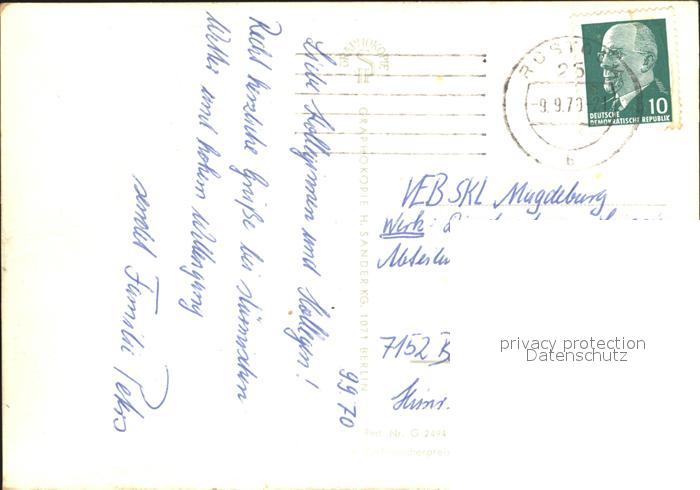 Liebe Kolleginnen und Kollegen!
Recht herzliche Grüße bei stürmischem
Wetter und hohem Wellengang
sendet Familie Peters
9.9.70
GRAPHOKOPIE
GRAPHOKOPIE H. SANDER KG, 1071 BERLIN
Best. Nr. G 2494
ROSTOCK
25
-9.9.70-21
b
10
DEUTSCHE
DEMOKRATISCHE REPUBLIK
VEB SKL Magdeburg
Werk:
7152 B
privacy protection
Datenschutz